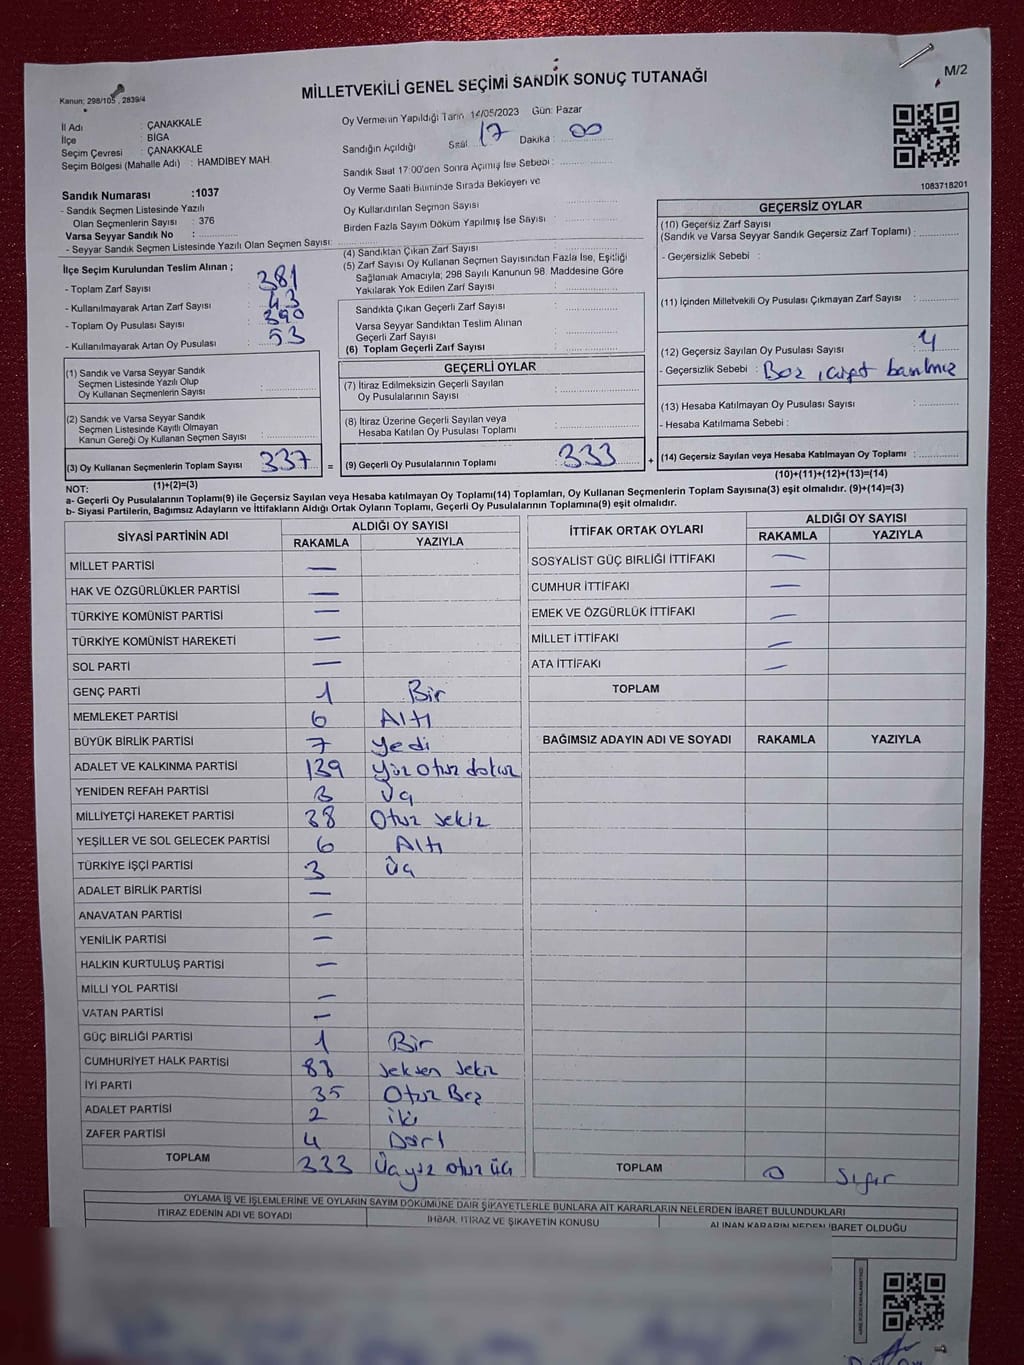 MİLLETVEKİLİ GENEL SEÇİMİ SANDIK SONUÇ TUTANAĞI
M/2
Kanun: 298/105 , 2839/4
İl Adı : ÇANAKKALE
İlçe : BİGA
Seçim Çevresi : ÇANAKKALE
Seçim Bölgesi (Mahalle Adı) : HAMDİBEY MAH.
Oy Vermenin Yapıldığı Tarih 14/05/2023 Gün: Pazar
Sandığın Açıldığı Saat 17 Dakika : 00
Sandık Saat 17:00'den Sonra Açımış İse Sebebi :
Oy Verme Saati Bitiminde Sırada Bekleyen ve
Oy Kullandırılan Seçmen Sayısı
Birden Fazla Sayım Döküm Yapılmış İse Sayısı :
1083718201
Sandık Numarası :1037
- Sandık Seçmen Listesinde Yazılı
Olan Seçmenlerin Sayısı : 376
Varsa Seyyar Sandık No :
- Seyyar Sandık Seçmen Listesinde Yazılı Olan Seçmen Sayısı:
İlçe Seçim Kurulundan Teslim Alınan ;
- Toplam Zarf Sayısı : 381
- Kullanılmayarak Artan Zarf Sayısı : 43
- Toplam Oy Pusulası Sayısı : 390
- Kullanılmayarak Artan Oy Pusulası : 53
(1) Sandık ve Varsa Seyyar Sandık
Seçmen Listesinde Yazılı Olup
Oy Kullanan Seçmenlerin Sayısı :
(2) Sandık ve Varsa Seyyar Sandık
Seçmen Listesinde Kayıtlı Olmayan
Kanun Gereği Oy Kullanan Seçmen Sayısı :
(3) Oy Kullanan Seçmenlerin Toplam Sayısı 337 =
(1)+(2)=(3)
(4) Sandıktan Çıkan Zarf Sayısı :
(5) Zarf Sayısı Oy Kullanan Seçmen Sayısından Fazla İse, Eşitliği
Sağlamak Amacıyla; 298 Sayılı Kanunun 98. Maddesine Göre
Yakılarak Yok Edilen Zarf Sayısı :
Sandıkta Çıkan Geçerli Zarf Sayısı :
Varsa Seyyar Sandıktan Teslim Alınan
Geçerli Zarf Sayısı :
(6) Toplam Geçerli Zarf Sayısı :
GEÇERLİ OYLAR
(7) İtiraz Edilmeksizin Geçerli Sayılan
Oy Pusulalarının Sayısı :
(8) İtiraz Üzerine Geçerli Sayılan veya
Hesaba Katılan Oy Pusulası Toplamı :
(9) Geçerli Oy Pusulalarının Toplamı : 333 +
GEÇERSİZ OYLAR
(10) Geçersiz Zarf Sayısı
(Sandık ve Varsa Seyyar Sandık Geçersiz Zarf Toplamı) :
- Geçersizlik Sebebi :
(11) İçinden Milletvekili Oy Pusulası Çıkmayan Zarf Sayısı :
(12) Geçersiz Sayılan Oy Pusulası Sayısı : 4
- Geçersizlik Sebebi : Boz
(13) Hesaba Katılmayan Oy Pusulası Sayısı :
- Hesaba Katılmama Sebebi :
(14) Geçersiz Sayılan veya Hesaba Katılmayan Oy Toplamı :
(10)+(11)+(12)+(13)=(14)
NOT:
a- Geçerli Oy Pusulalarının Toplamı(9) ile Geçersiz Sayılan veya Hesaba katılmayan Oy Toplamı(14) Toplamları, Oy Kullanan Seçmenlerin Toplam Sayısına(3) eşit olmalıdır. (9)+(14)=(3)
b- Siyasi Partilerin, Bağımsız Adayların ve İttifakların Aldığı Ortak Oyların Toplamı, Geçerli Oy Pusulalarının Toplamına(9) eşit olmalıdır.
SİYASİ PARTİNİN ADI ALDIĞI OY SAYISI
RAKAMLA YAZIYLA
MİLLET PARTİSİ —
HAK VE ÖZGÜRLÜKLER PARTİSİ —
TÜRKİYE KOMÜNİST PARTİSİ —
TÜRKİYE KOMÜNİST HAREKETİ —
SOL PARTİ —
GENÇ PARTİ 1 Bir
MEMLEKET PARTİSİ 6 Altı
BÜYÜK BİRLİK PARTİSİ 7 Yedi
ADALET VE KALKINMA PARTİSİ 139 Yüz otuz dokuz
YENİDEN REFAH PARTİSİ 3 Üç
MİLLİYETÇİ HAREKET PARTİSİ 38 Otuz sekiz
YEŞİLLER VE SOL GELECEK PARTİSİ 6 Altı
TÜRKİYE İŞÇİ PARTİSİ 3 Üç
ADALET BİRLİK PARTİSİ —
ANAVATAN PARTİSİ —
YENİLİK PARTİSİ —
HALKIN KURTULUŞ PARTİSİ —
MİLLİ YOL PARTİSİ —
VATAN PARTİSİ —
GÜÇ BİRLİĞİ PARTİSİ 1 Bir
CUMHURİYET HALK PARTİSİ 88 seksen sekiz
İYİ PARTİ 35 Otuz Beş
ADALET PARTİSİ 2 iki
ZAFER PARTİSİ 4 Dört
TOPLAM 333 Üçyüz otuz üç
İTTİFAK ORTAK OYLARI ALDIĞI OY SAYISI
RAKAMLA YAZIYLA
SOSYALİST GÜÇ BİRLİĞİ İTTİFAKI —
CUMHUR İTTİFAKI —
EMEK VE ÖZGÜRLÜK İTTİFAKI —
MİLLET İTTİFAKI —
ATA İTTİFAKI —
TOPLAM
BAĞIMSIZ ADAYIN ADI VE SOYADI RAKAMLA YAZIYLA
TOPLAM 0 Sıfır
OYLAMA İŞ VE İŞLEMLERİNE VE OYLARIN SAYIM DÖKÜMÜNE DAİR ŞİKAYETLERLE BUNLARA AİT KARARLARIN NELERDEN İBARET BULUNDUKLARI
İTİRAZ EDENİN ADI VE SOYADI İHBAR, İTİRAZ VE ŞİKAYETİN KONUSU ALINAN KARARIN NEDEN İBARET OLDUĞU